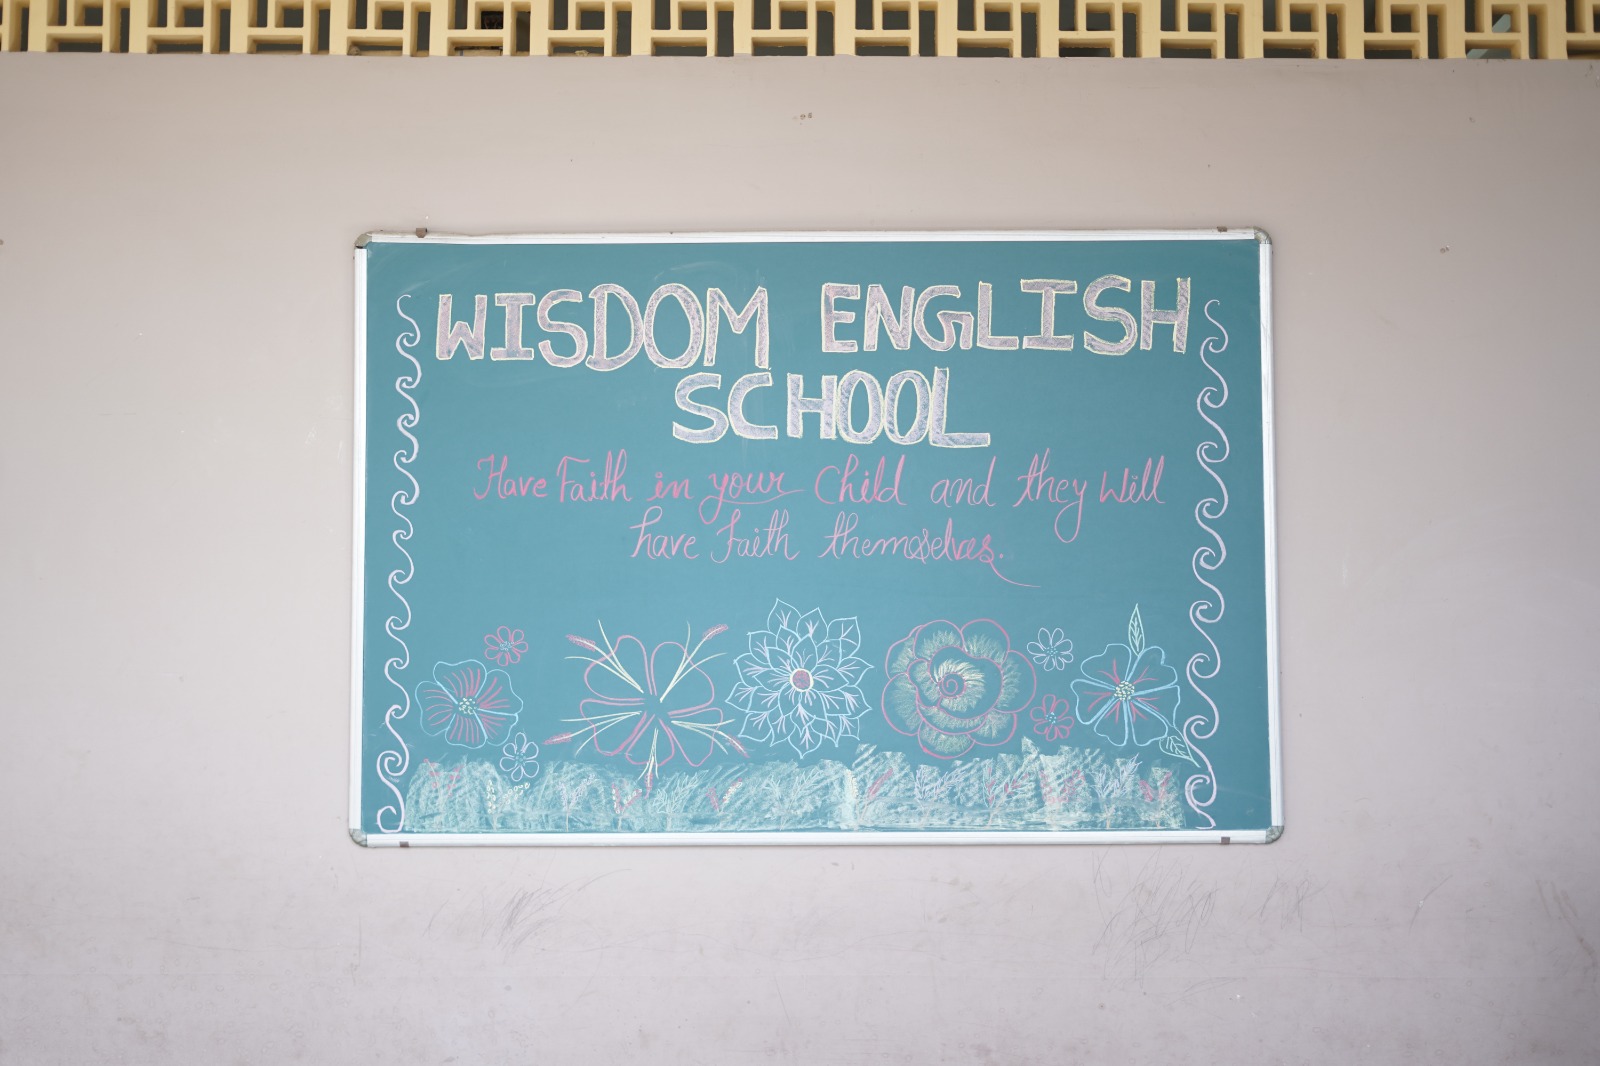 WISDOM ENGLISH
SCHOOL
Have Faith in your Child and they Will
have Faith themselves.